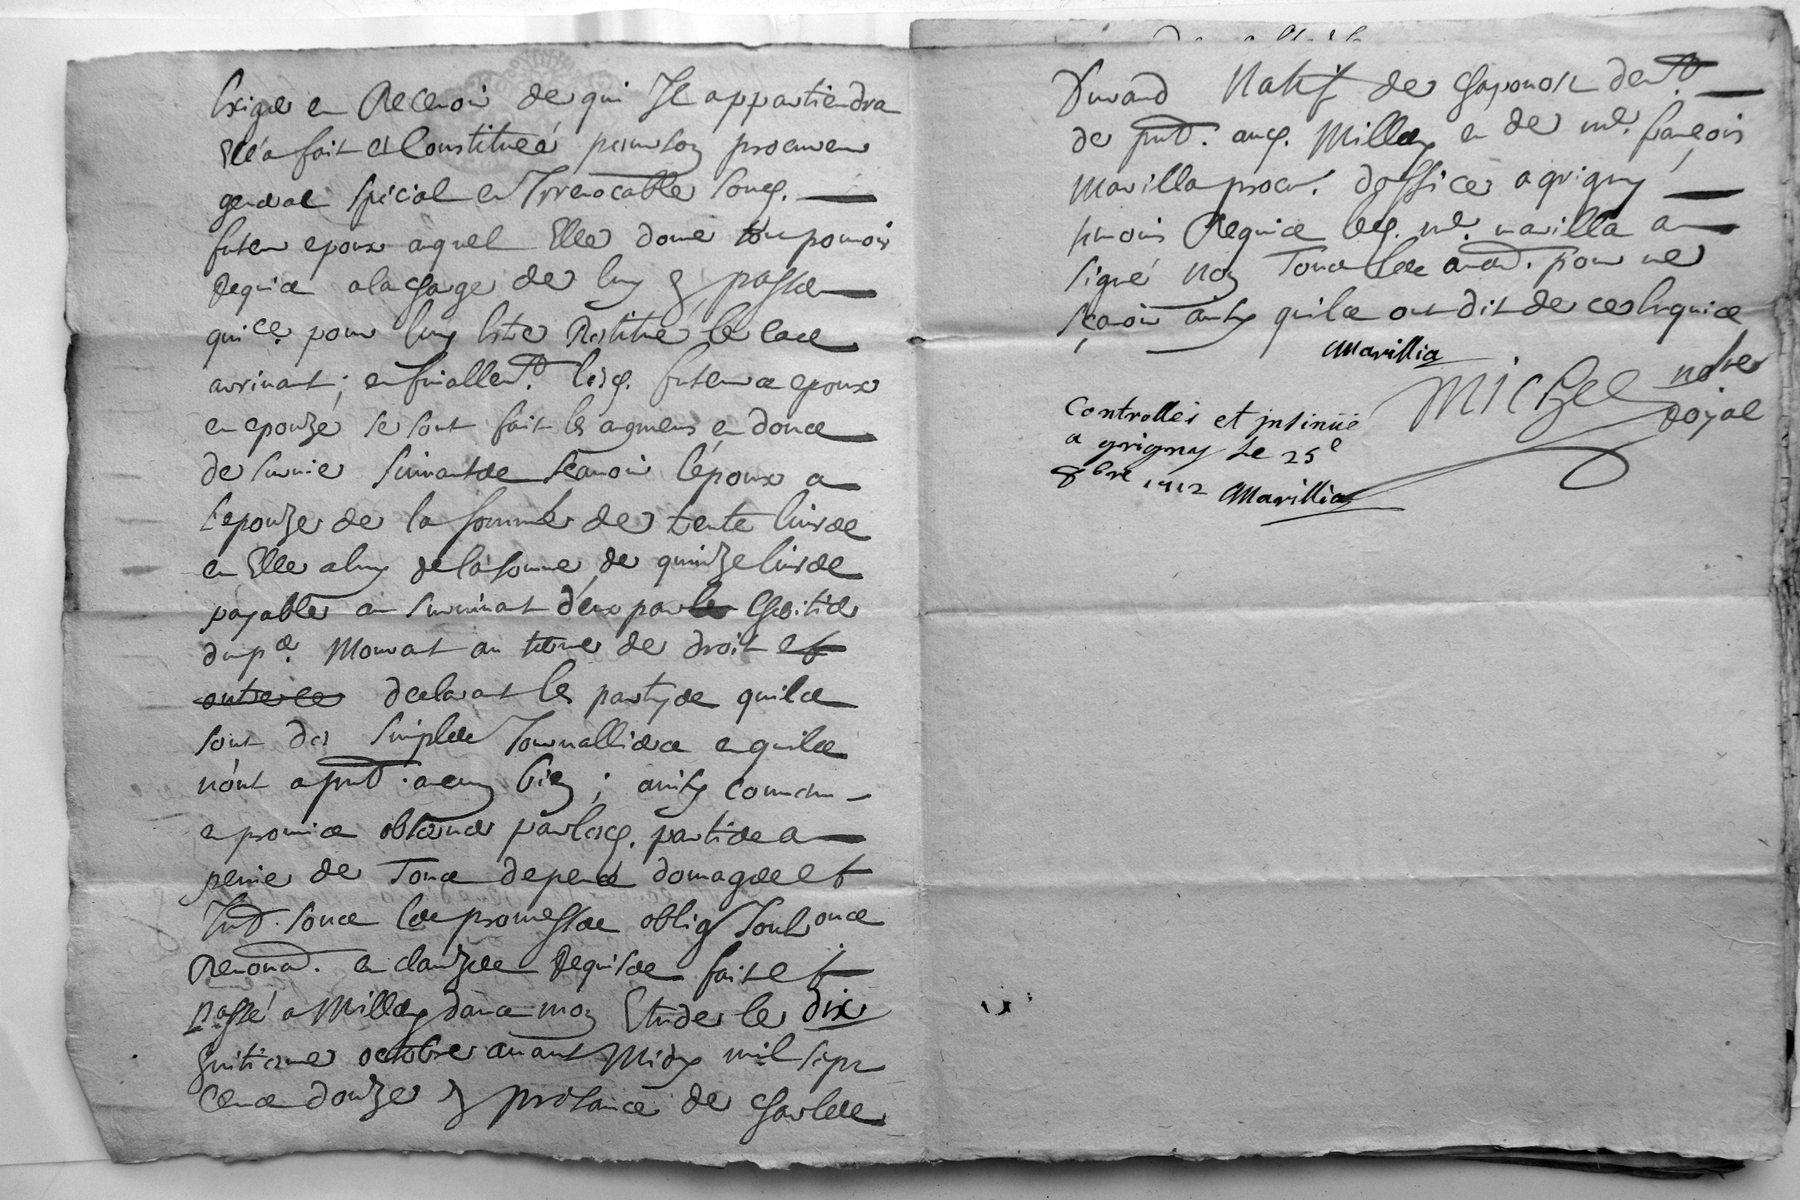 Exiger en Recevoir de qui Il appartiendra
Elle a fait et Constitueé pour son procureur
general spécial en Irrevocable Sond.
futeur epoux auquel Elle donne pouvoir
Requis a la charge de luy passer
quice. pour luy Estre Restitué le cas
arrivant ; en fu epoux
en epouze se sont fait les augmens en donce
de survie suivantes scavoir l'époux a
l'epouze de la somme de trente livres
en Elle a luy de la somme de quinze livres
payable au survivant d'eux par les heritiers
du p. Mourant au terme de droit et
outre ce declarant les partyes quils
sont des simples Journalliers en quils
n'ont a pnt. aucun bien ; ainsy convenu
en promis observer par lesd. parties a
peine de Tous depens domages et
Int. sous les promesses oblig
Renond. en clauzes Requises fait et
passé a Millery dans mon Etude le dix
huitieme octobre avant Midy mil sept
cens douze en presance de charles
Durand Natif de chaponost dem.t
de pnt. aud. Millery en de me. françois
Marillia procur. d'office a grigny
temoins Requis led. me. marillia a
signé non Tous les autres pour ne
sçavoir ainsy quils ont dit de ce Enquis
Marillia
Michel notre
Royal
Controllés et insinüé
a grigny Le 25e
8bre 1712 Marillia